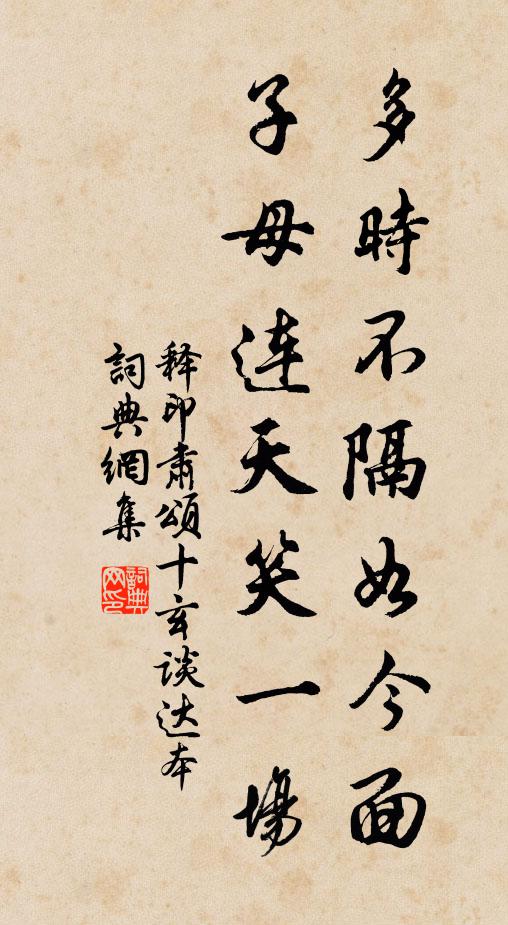 多時不隔如今面
子母連天笑一場
释印肃頌十玄談达本
詞典網集
詞典网印